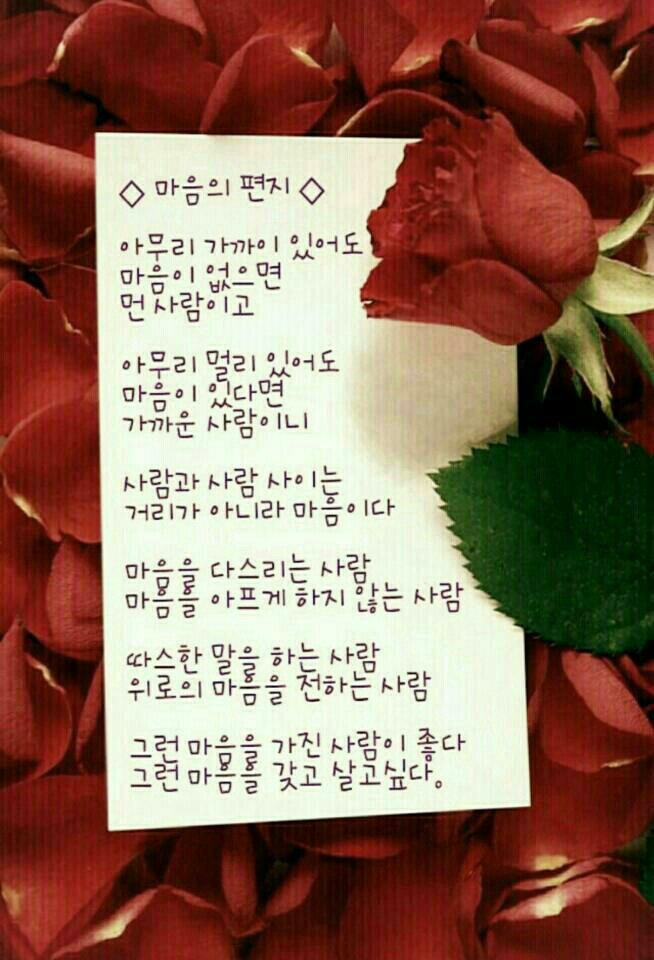 ◇ 마음의 편지 ◇
아무리 가까이 있어도
마음이 없으면
먼 사람이고
아무리 멀리 있어도
마음이 있다면
가까운 사람이니
사람과 사람 사이는
거리가 아니라 마음이다
마음을 다스리는 사람
마음을 아프게 하지 않는 사람
따스한 말을 하는 사람
위로의 마음을 전하는 사람
그런 마음을 가진 사람이 좋다
그런 마음을 갖고 살고싶다。